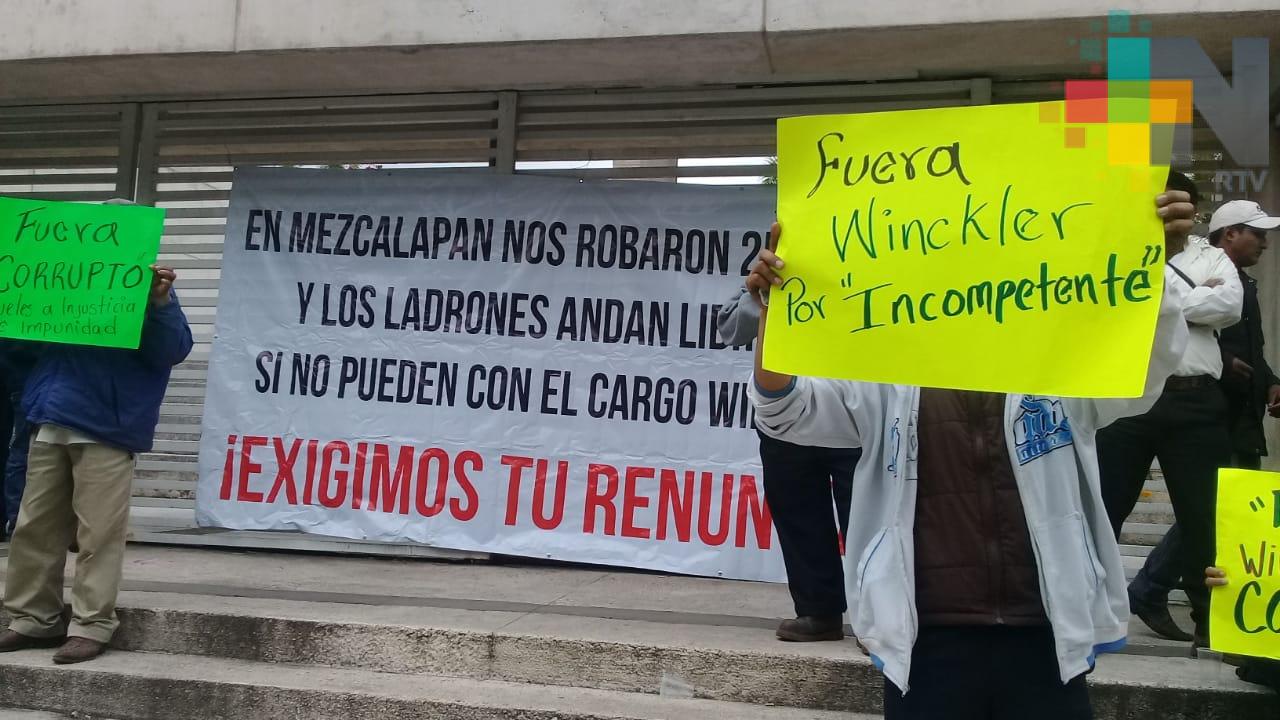 Fuera
CORRUPTO"
a Injusticia
Impunidad
EN MEZCALAPAN NOS ROBARON
Y LOS LADRONES ANDAN
SI NO PUEDEN CON EL CARGO
¡EXIGIMOS TU RENUN
Fuera
Winckler
Por "Incompetente"
N
RTV